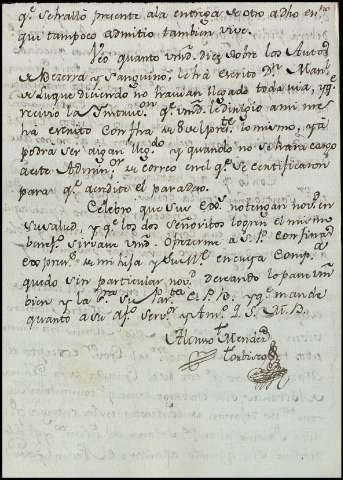 qe. se hallô presente ala entrega de otro adho en
qui tampoco admitio tambien vive.
Veo quanto vmd. dize sobre los Autos
de Bezerra y Sanguino, le há escrito Dn. Manl.
de Luque diciendo no havian llegado todavia, y qe.
recivio la qe. vmd. le dirigio a mi me
há escrito con fha de lo mismo, y a
podra ser aigan llegdo. y quando no se hara cargo
a este Adminor. de correo en el qe. se certificaron
para qe. acredite el paradero.
Celebro que sus no tengan novd. en
su salud, y qe. los dos Señoritos logren el mismo
benefo. sirvase vmd. ofrezerme a S. P. con finas
de mi hija y en cuya Compa.
quedo sin particular novd. deseando lo pase vm
bien y la de su y qe. mande
quanto a su afo. servor. y Amo. Q. S. M. B.
Alonso Menaez
Tordisco